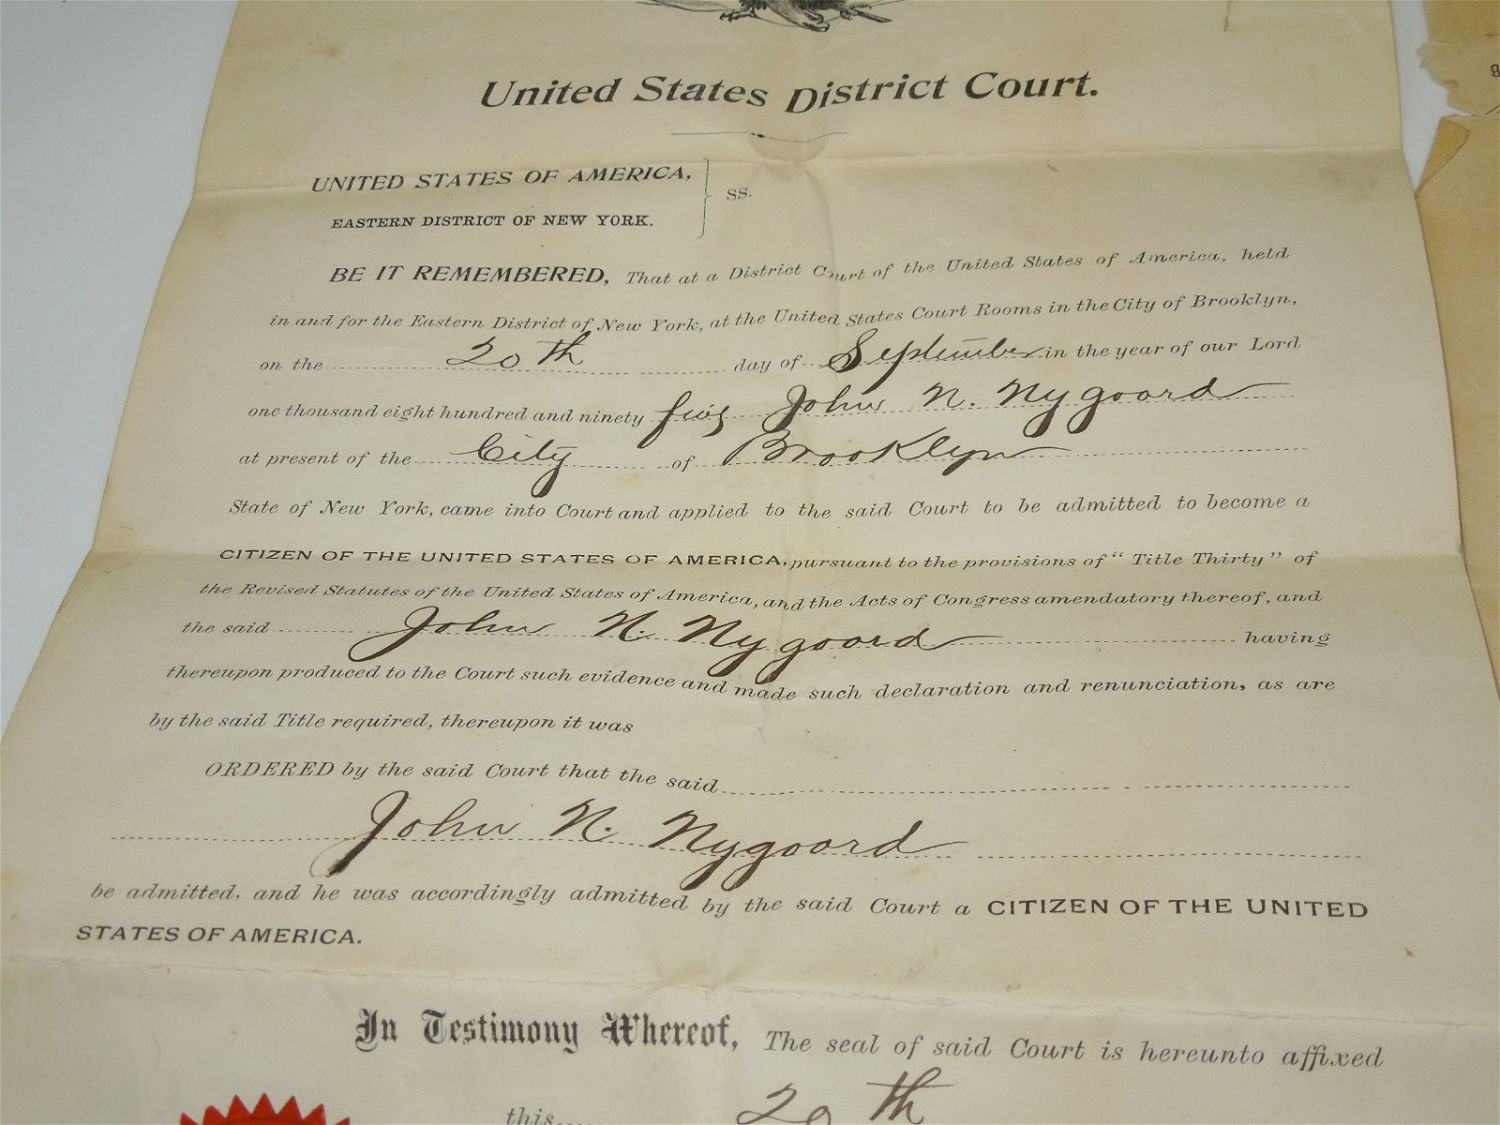 United States District Court.
UNITED STATES OF AMERICA,
SS.
EASTERN DISTRICT OF NEW YORK.
BE IT REMEMBERED, That at a District Court of the United States of America, held
in and for the Eastern District of New York, at the United States Court Rooms in the City of Brooklyn,
on the 20th day of September in the year of our Lord
one thousand eight hundred and ninety five John N. Nygoord
at present of the City of Brooklyn
State of New York, came into Court and applied to the said Court to be admitted to become a
CITIZEN OF THE UNITED STATES OF AMERICA, pursuant to the provisions of "Title Thirty" of
the Revised Statutes of the United States of America, and the Acts of Congress amendatory thereof, and
the said John N. Nygoord having
thereupon produced to the Court such evidence and made such declaration and renunciation, as are
by the said Title required, thereupon it was
ORDERED by the said Court that the said
John N. Nygoord
be admitted, and he was accordingly admitted by the said Court a CITIZEN OF THE UNITED
STATES OF AMERICA.
In Testimony Whereof, The seal of said Court is hereunto affixed
this 20th